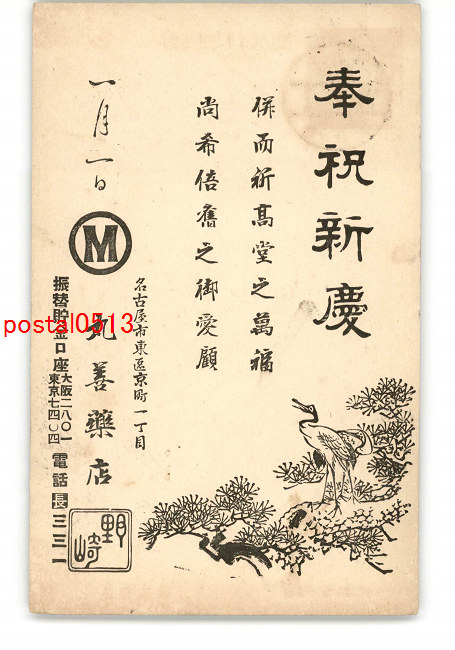 奉祝新慶
併而祈髙堂之萬福
尚希倍舊之御愛顧
一月一日
M
名古屋市東區京町一丁目
丸善藥店
野崎
振替貯金口座
大阪二八〇一
東京七四〇四
電話長三三一
postal0513